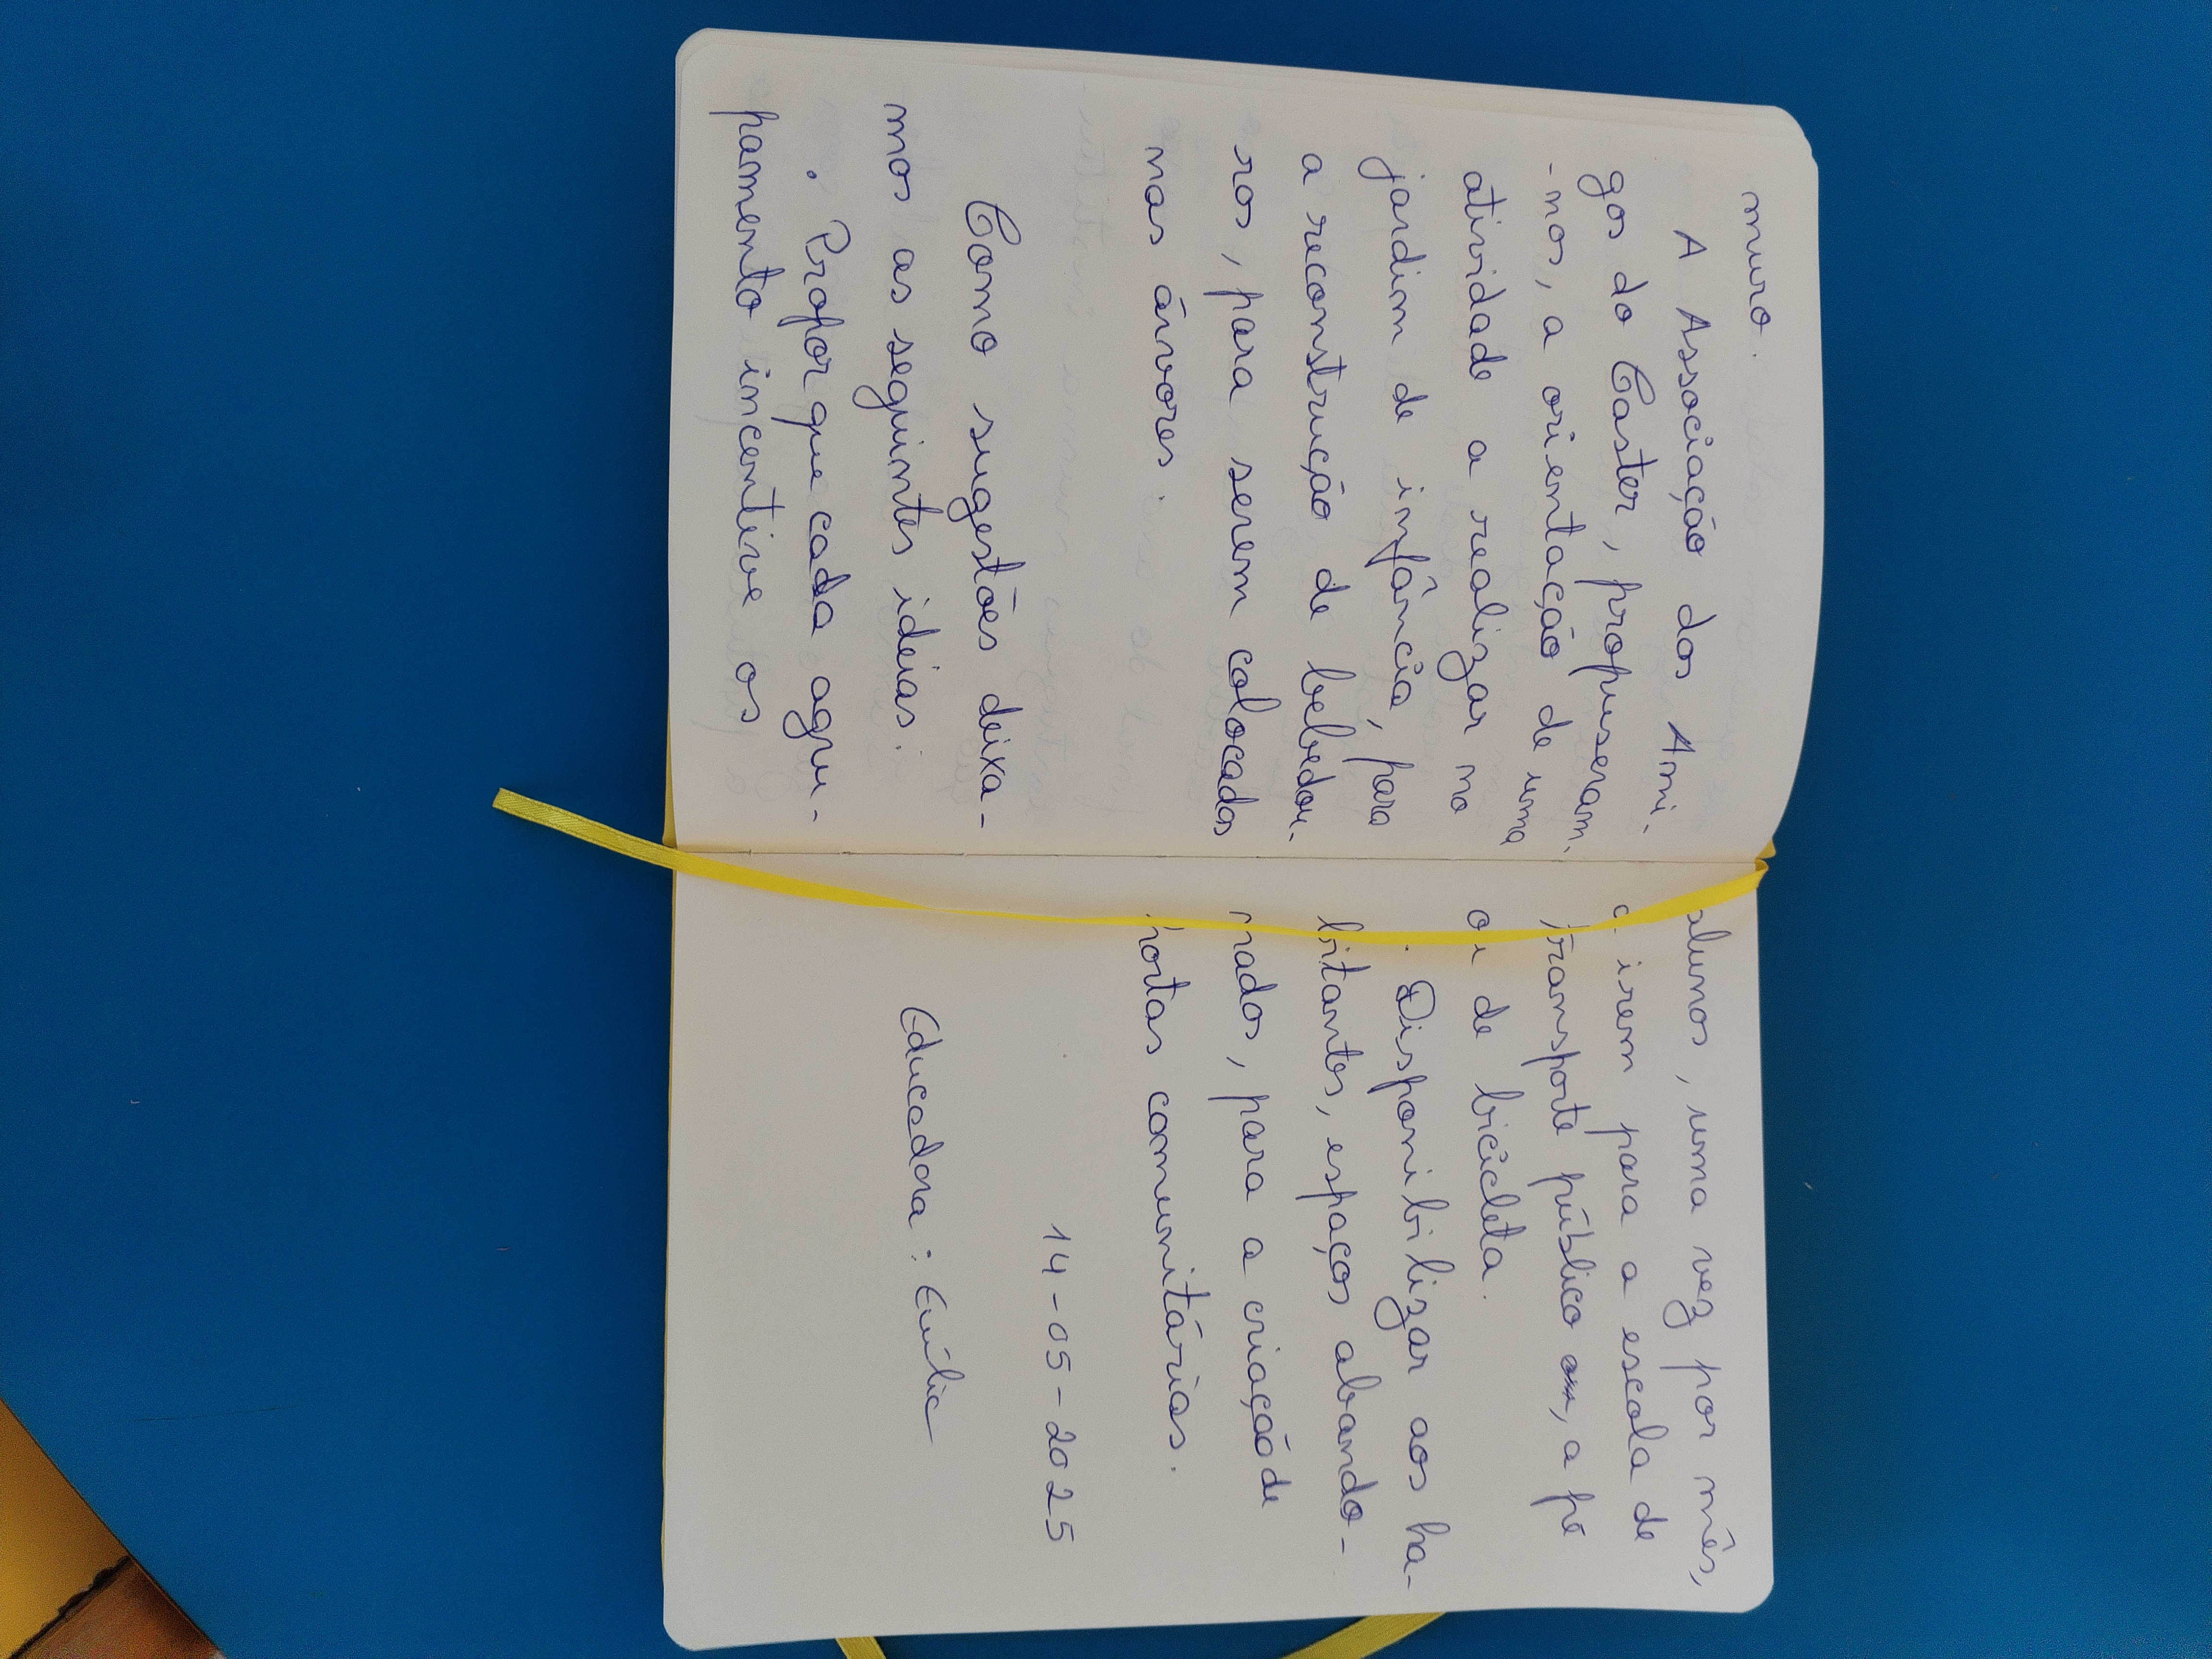 muro.
A Associação dos Ami-
gos do Caster, propuseram-
-nos, a orientação de uma
atividade a realizar no
jardim de infância, para
a reconstrução de bebedou-
ros, para serem colocados
nas árvores.
Como sugestões deixa-
mos as seguintes ideias:
. Propor que cada agru-
pamento incentive os
alunos, uma vez por mês,
a irem para a escola de
transporte público, a pé
ou de bicicleta.
. Disponibilizar aos ha-
bitantes, espaços abando-
nados, para a criação de
hortas comunitárias.
14-05-2025
Educadora: